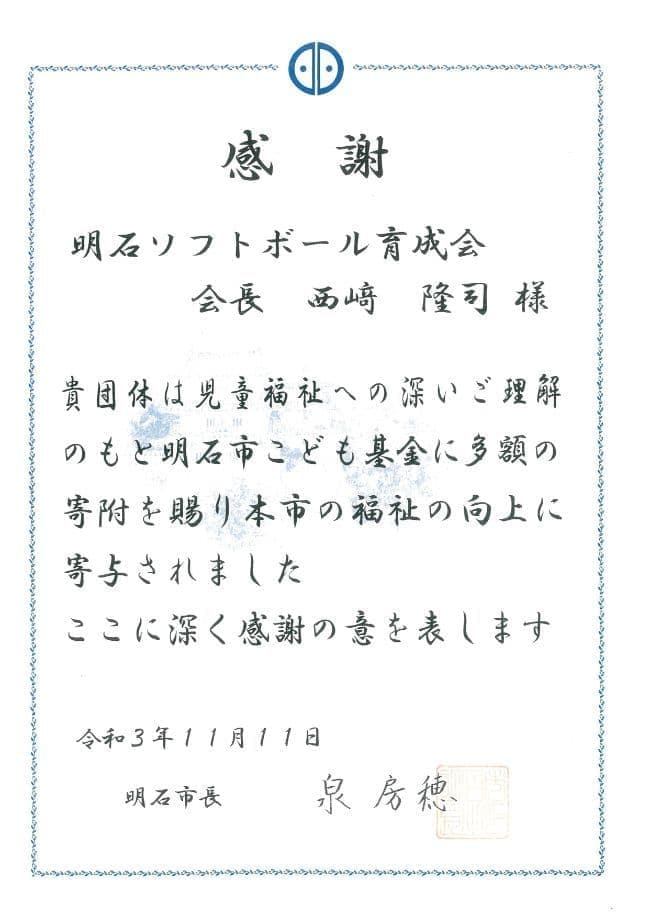 感 謝
明石ソフトボール育成会
会長 西﨑 隆司 様
貴団体は児童福祉への深いご理解
のもと明石市こども基金に多額の
寄附を賜り本市の福祉の向上に
寄与されました
ここに深く感謝の意を表します
令和3年11月11日
明石市長 泉 房穂